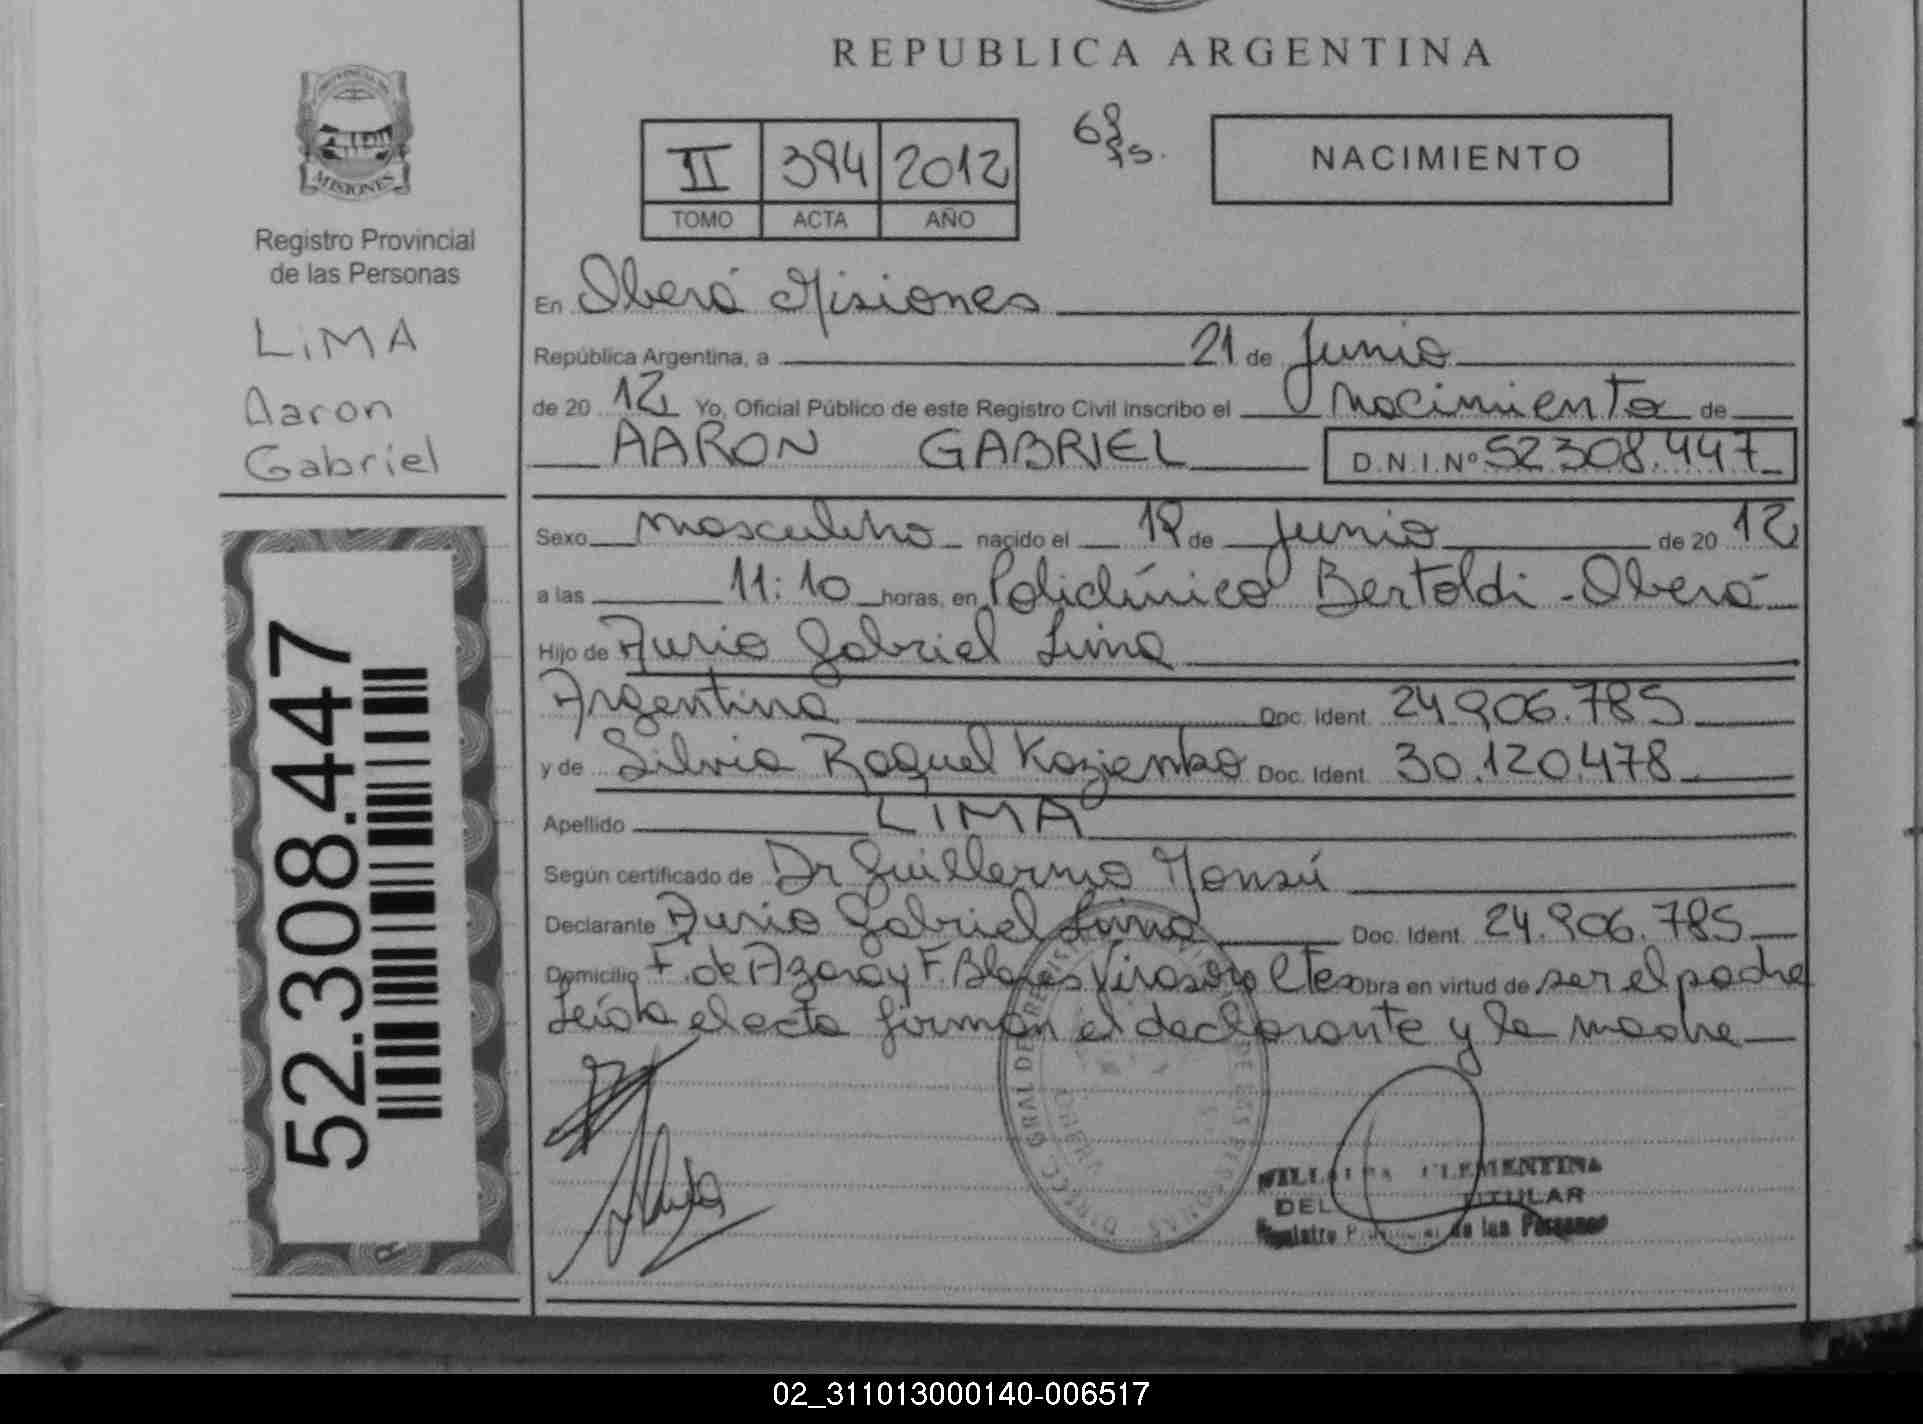 REPUBLICA ARGENTINA
PROVINCIA DE
MISIONES
Registro Provincial
de las Personas
LiMA
Aaron
Gabriel
52.308.447
II 394 2012
TOMO ACTA AÑO
NACIMIENTO
En Oberá Misiones
República Argentina, a 21 de Junio
de 20 12 Yo, Oficial Público de este Registro Civil inscribo el Nacimiento de
AARON GABRIEL D.N.I.Nº 52308.447
Sexo masculino nacido el 19 de Junio de 20 12
a las 11:10 horas, en Policlínico Bertoldi - Oberá
Hijo de Gabriel Lima
Argentina Doc. Ident. 24.906.785
y de Silvia Raquel Doc. Ident. 30.120.478
Apellido LIMA
Según certificado de Dr Guillermo Monsú
Declarante Gabriel Lima Doc. Ident. 24.906.785
Domicilio F. de Azara y F. Virasoro Ctes Obra en virtud de ser el padre
Leída el acta firman el declarante y la madre
CLEMENTINA
DEL TITULAR
Registro de las Personas
02_311013000140-006517